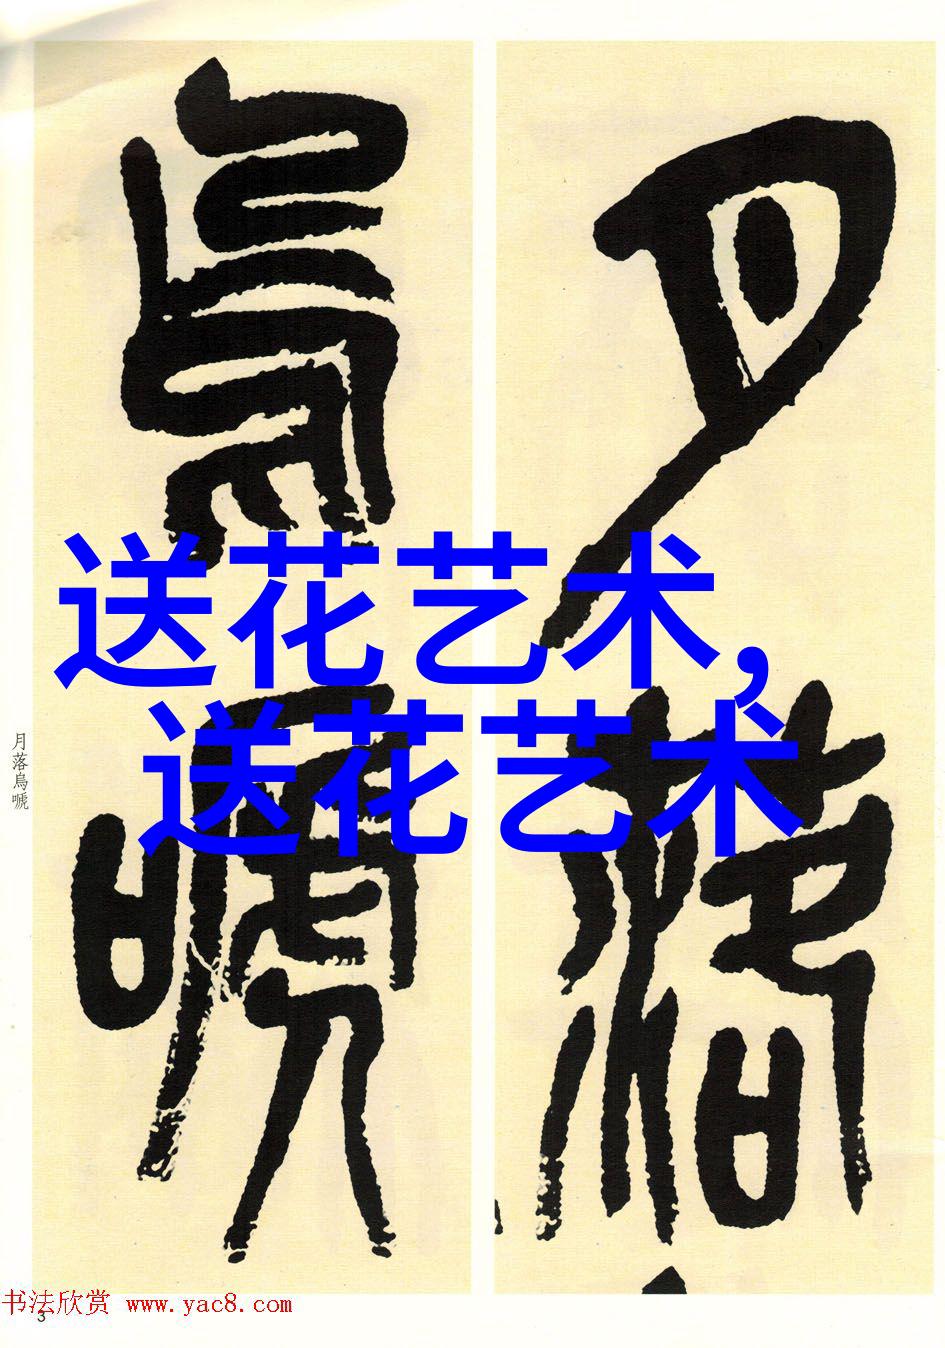 月落
烏嗁
送花艺术,
送花艺术
月落烏嗁
书法欣赏 www.yac8.com
3